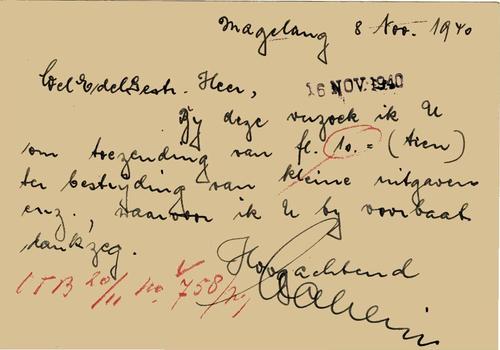 Magelang 8 Nov. 1940
WelEdelGestr. Heer,
16 NOV. 1940
By deze verzoek ik U
om toezending van fl. 10.= (tien)
ter bestryding van kleine uitgaven
enz., waarvoor ik U by voorbaat
dankzeg.
Hoogachtend
ITB 20/11 No. 758/